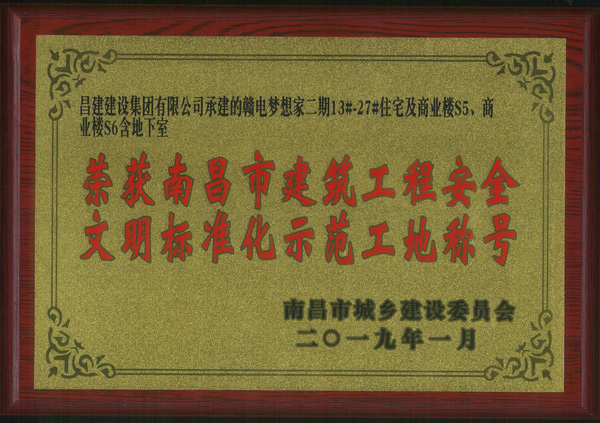 昌建建设集团有限公司承建的赣电梦想家二期13#-27#住宅及商业楼S5、商
业楼S6含地下室
荣获南昌市建筑工程安全
文明标准化示范工地称号
南昌市城乡建设委员会
二〇一九年一月